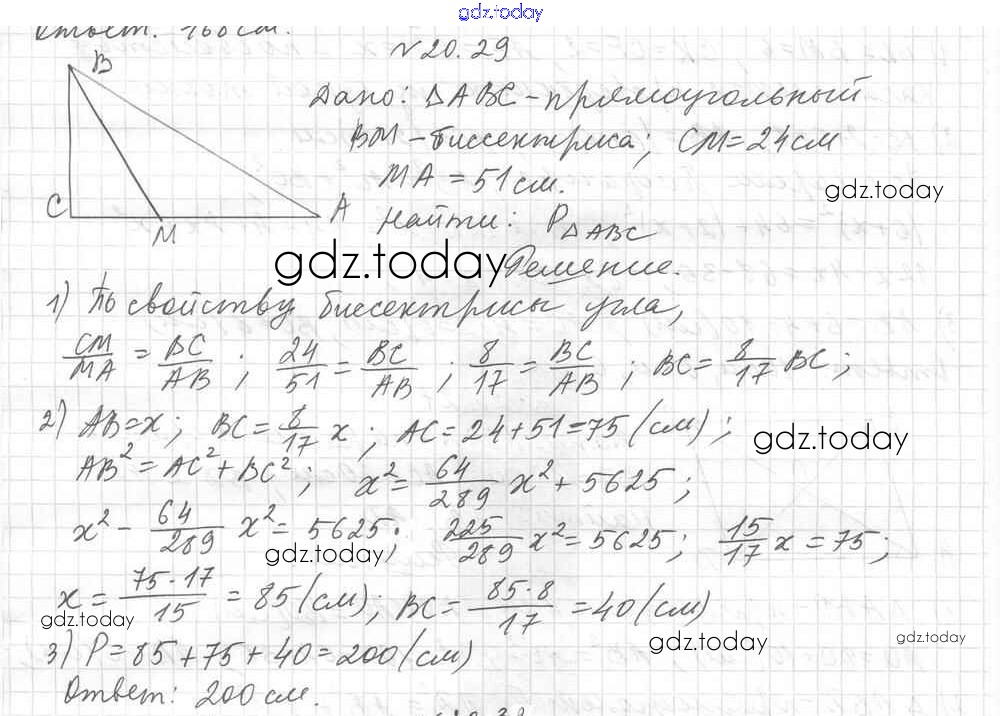 gdz.today
Ответ: 160 см.
№ 20.29
B
C
M
A
Дано: △ABC - прямоугольный
BM - биссектриса; CM = 24 см
MA = 51 см.
gdz.today
Найти: P△ABC
gdz.today
Решение.
1) По свойству биссектрисы угла,
CM/MA = BC/AB ; 24/51 = BC/AB ; 8/17 = BC/AB ; BC = 8/17 BC ;
2) AB = x ; BC = 8/17 x ; AC = 24 + 51 = 75 (см) ;
gdz.today
AB² = AC² + BC² ; x² = 64/289 x² + 5625 ;
x² - 64/289 x² = 5625 ; 225/289 x² = 5625 ; 15/17 x = 75 ;
gdz.today
x = 75·17/15 = 85 (см) ; BC = 85·8/17 = 40 (см)
gdz.today
gdz.today
gdz.today
3) P = 85 + 75 + 40 = 200 (см)
Ответ: 200 см.